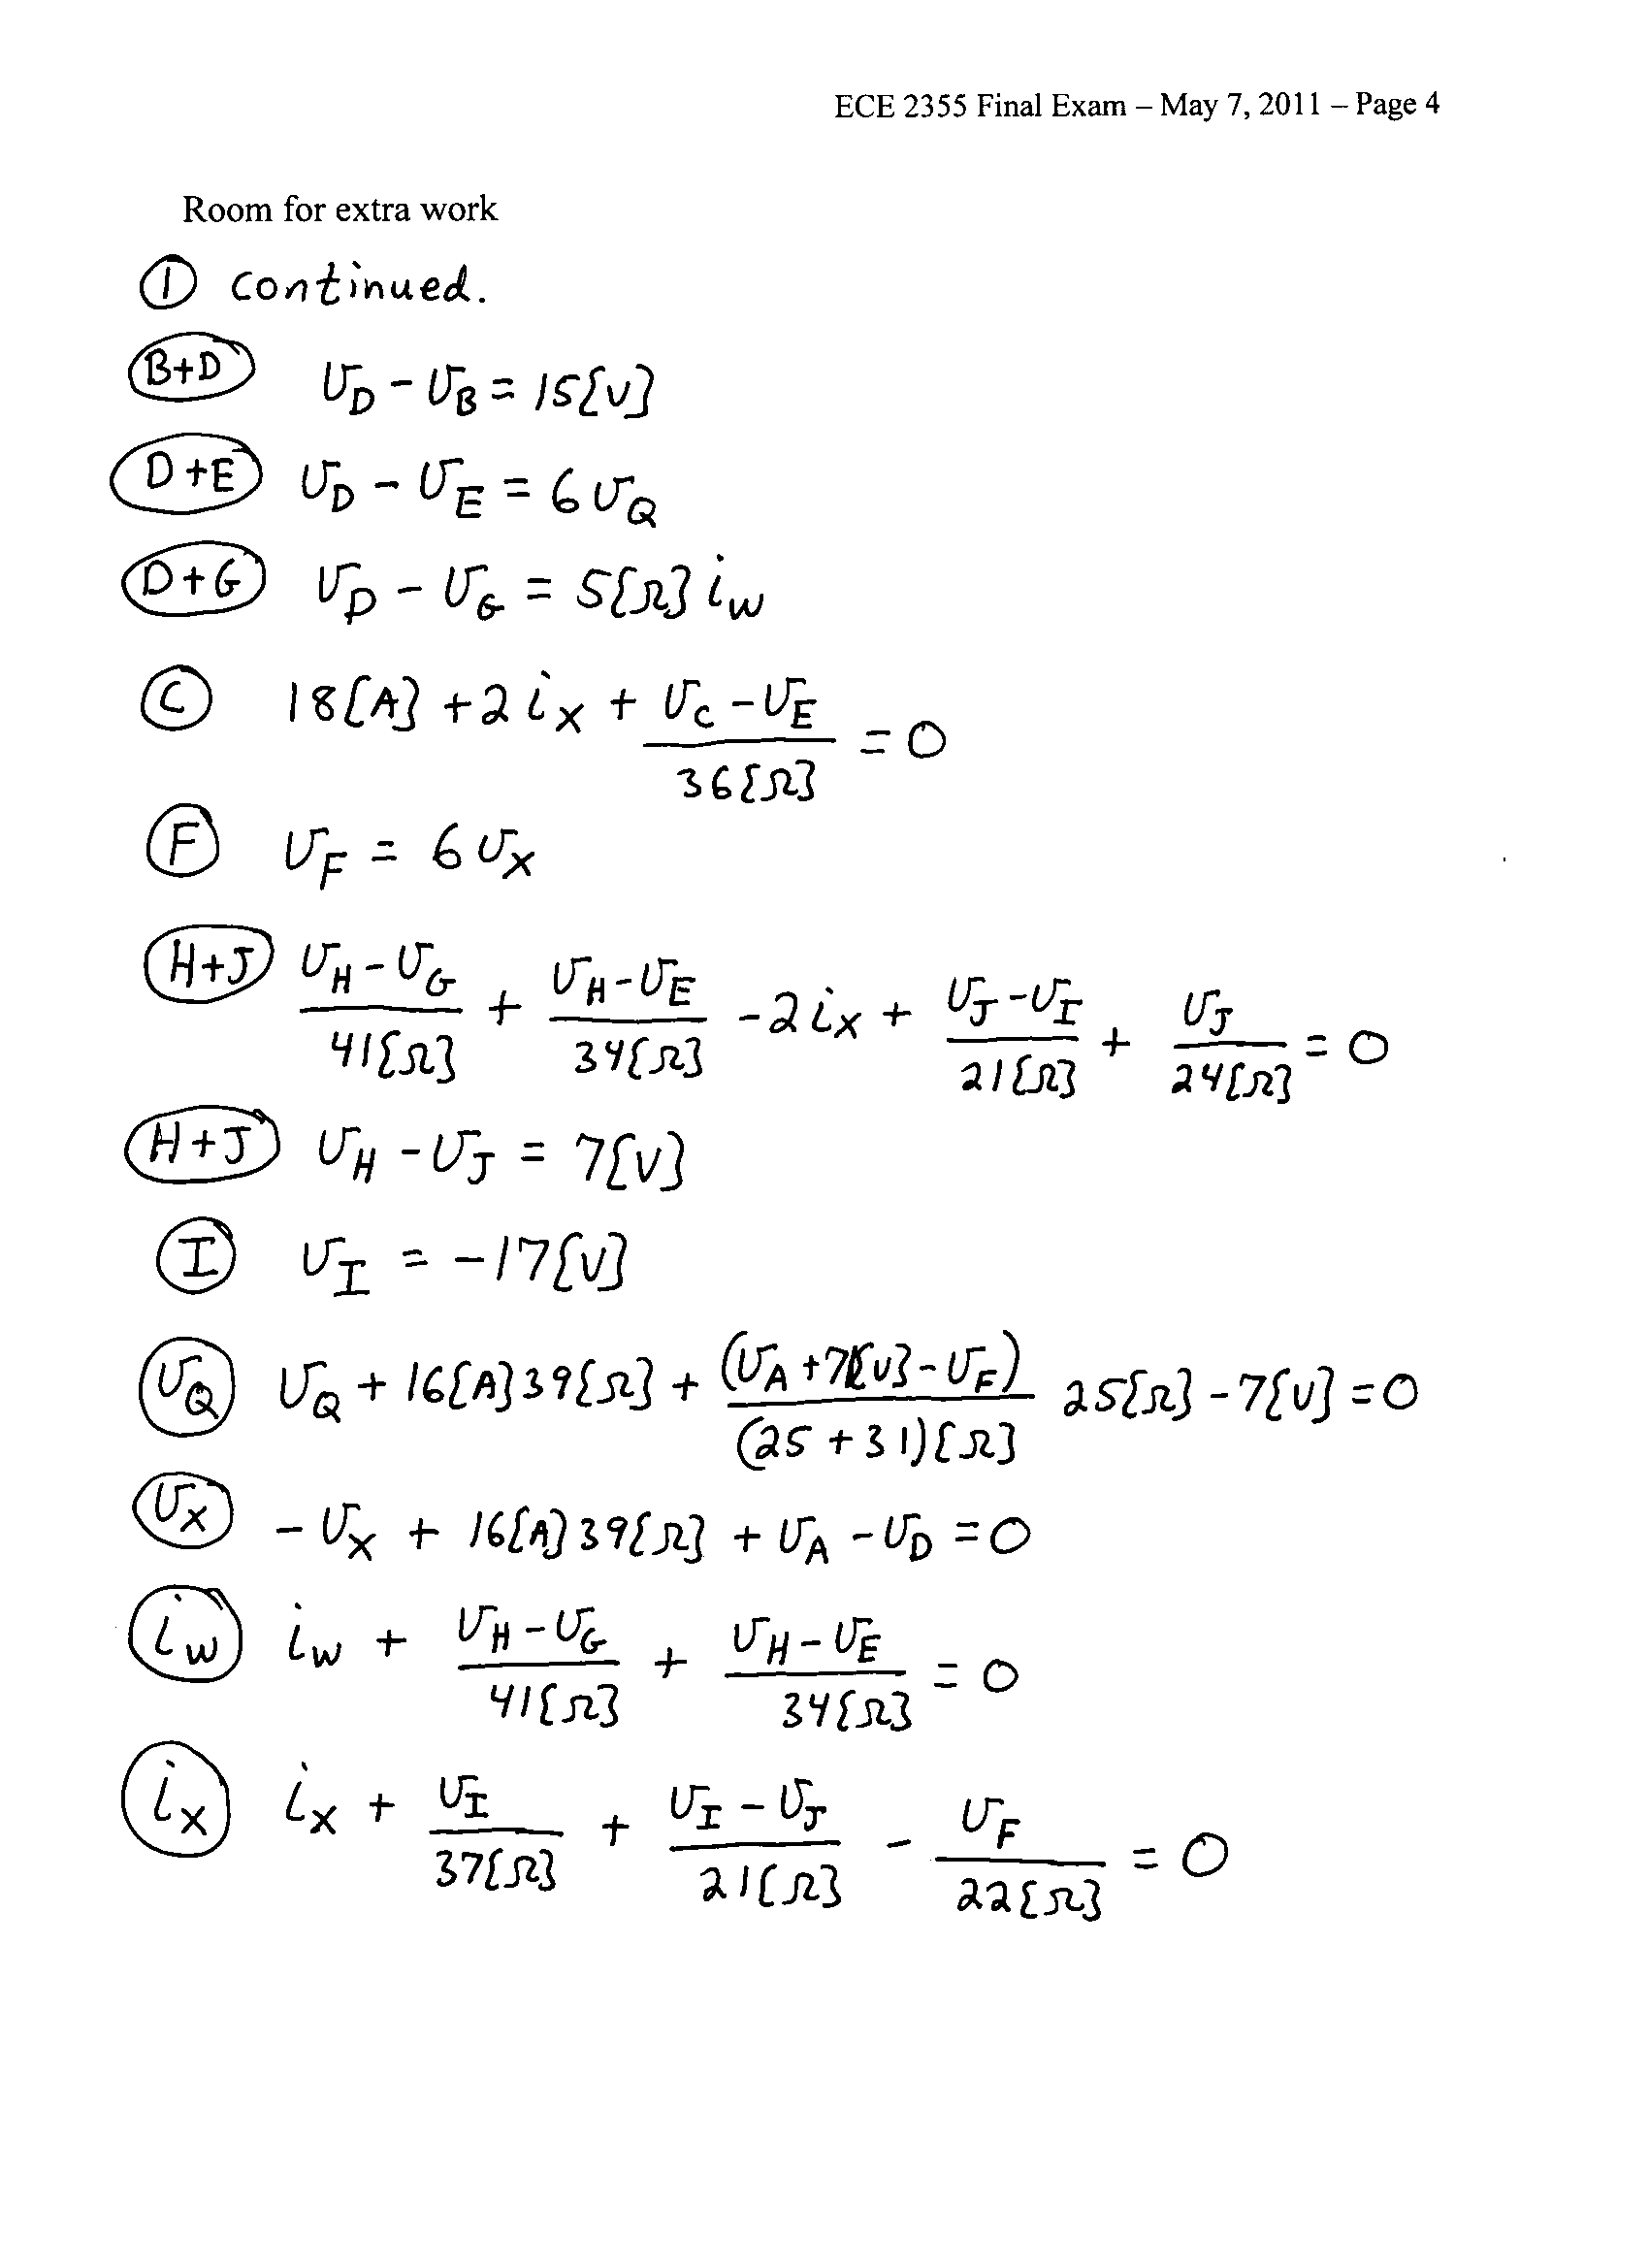 ECE 2355 Final Exam – May 7, 2011 – Page 4
Room for extra work
① continued.
(B+D) v_D - v_B = 15[V]
(D+E) v_D - v_E = 6 v_Q
(D+G) v_D - v_G = 5[Ω] i_W
(C) 18[A] + 2 i_X + (v_C - v_E)/36[Ω] = 0
(F) v_F = 6 v_X
(H+J) (v_H - v_G)/41[Ω] + (v_H - v_E)/34[Ω] - 2 i_X + (v_J - v_I)/21[Ω] + v_J/24[Ω] = 0
(H+J) v_H - v_J = 7[V]
(I) v_I = -17[V]
(v_Q) v_Q + 16[A] 39[Ω] + (v_A + 7[V] - v_F)/(25 + 31)[Ω] 25[Ω] - 7[V] = 0
(v_X) - v_X + 16[A] 39[Ω] + v_A - v_D = 0
(i_W) i_W + (v_H - v_G)/41[Ω] + (v_H - v_E)/34[Ω] = 0
(i_X) i_X + v_I/37[Ω] + (v_I - v_J)/21[Ω] - v_F/22[Ω] = 0